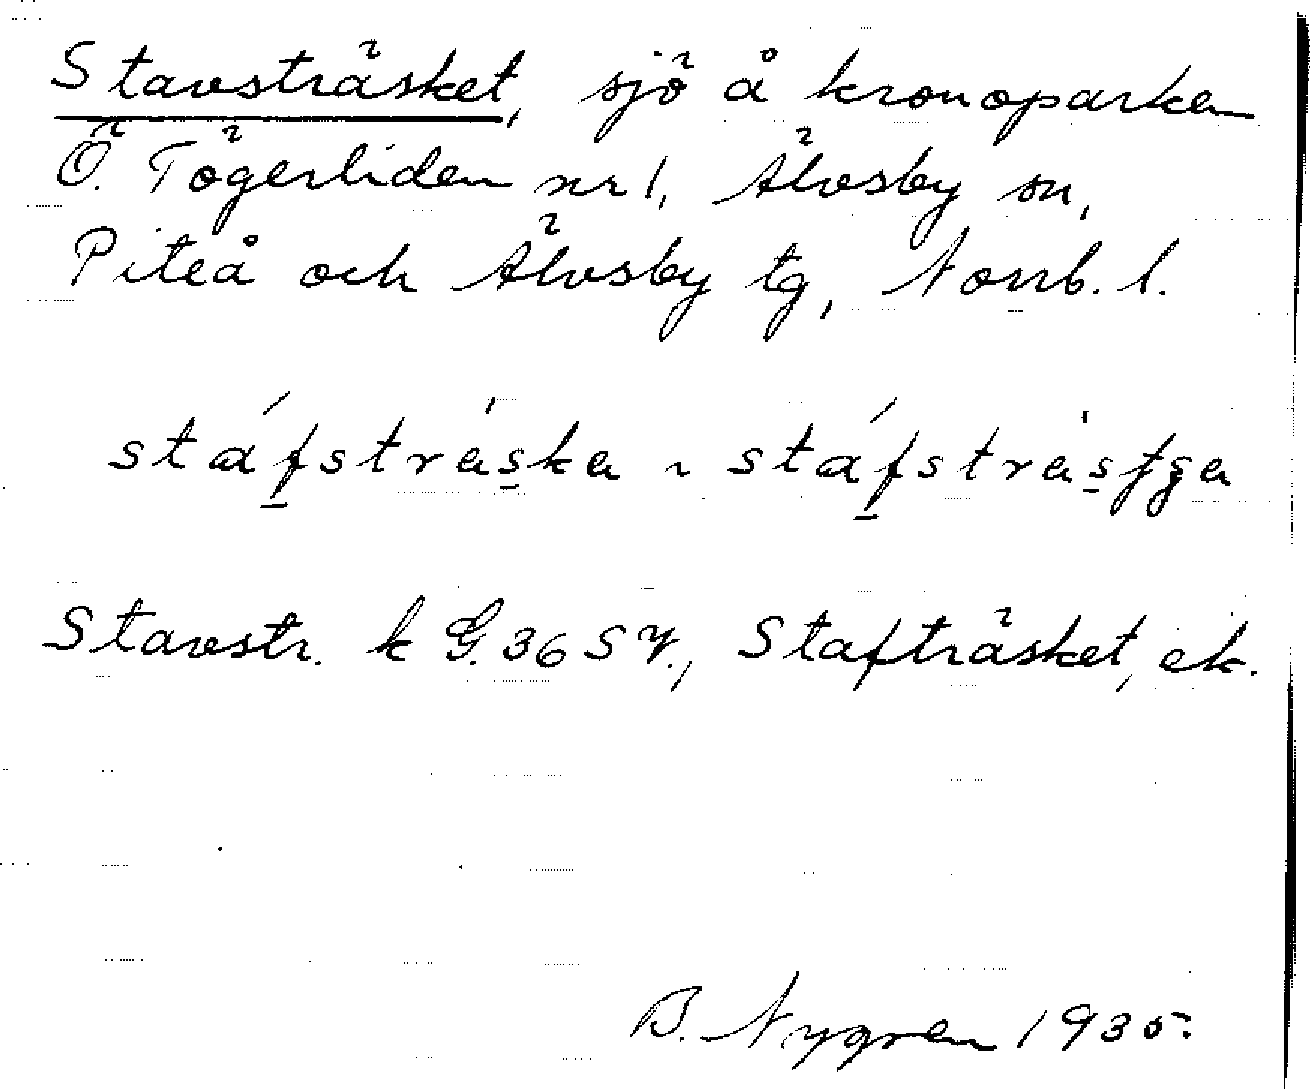 Stavsträsket, sjö å kronoparken
Ö. Tögerliden nr 1, Älvsby sn,
Piteå och Älvsby tg, Norrb. l.
stáfstráska ~ stáfstrásʃʒa
Stavstr. k G. 36 S V., Stafträsket, ek.
B. Nygren 1935.